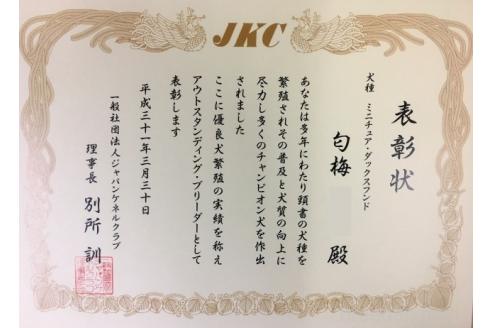 JKC
表彰状
犬種 ミニチュア・ダックスフンド
匂梅 殿
あなたは多年にわたり頭書の犬種を
繁殖されその普及と犬質の向上に
尽力し多くのチャンピオン犬を作出
されました
ここに優良犬繁殖の実績を称え
アウトスタンディング・ブリーダーとして
表彰します
平成三十一年三月三十日
一般社団法人ジャパンケネルクラブ
理事長 別所訓